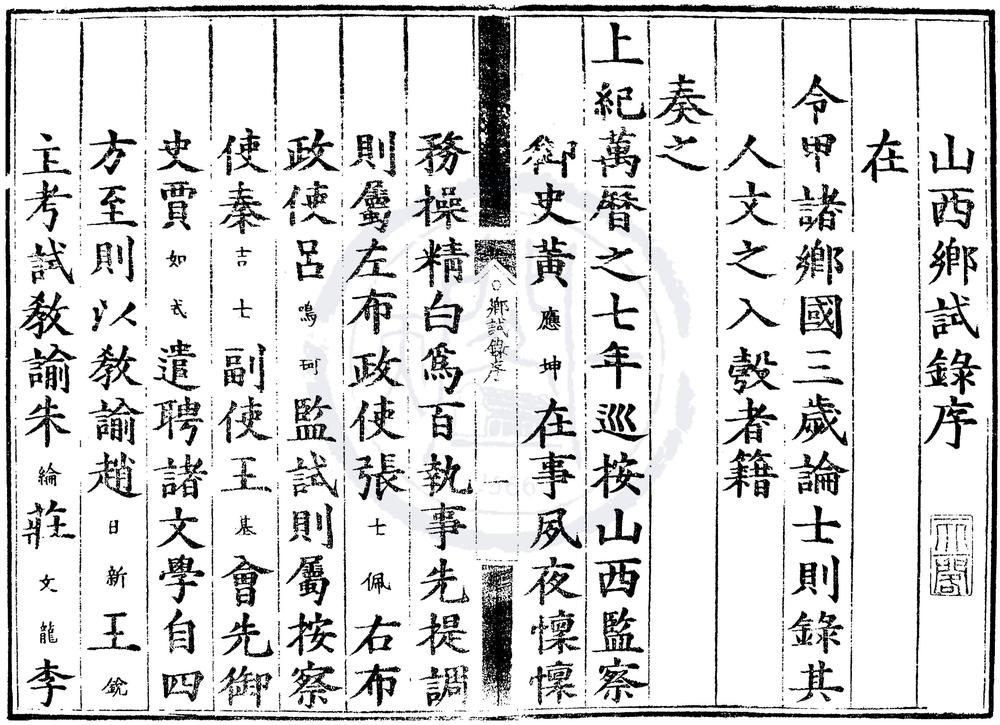 山西鄉試錄序
在
令甲諸鄉國三歲論士則錄其
人文之入彀者籍
奏之
上紀萬曆之七年巡按山西監察
御史黃應坤在事夙夜懍懍
鄉試錄序
務操精白爲百執事先提調
則屬左布政使張士佩右布
政使呂鳴珂監試則屬按察
使秦吉士副使王基會先御
史賈如式遣聘諸文學自四
方至則以教諭趙日新王銳
主考試教諭朱綸莊文龍李